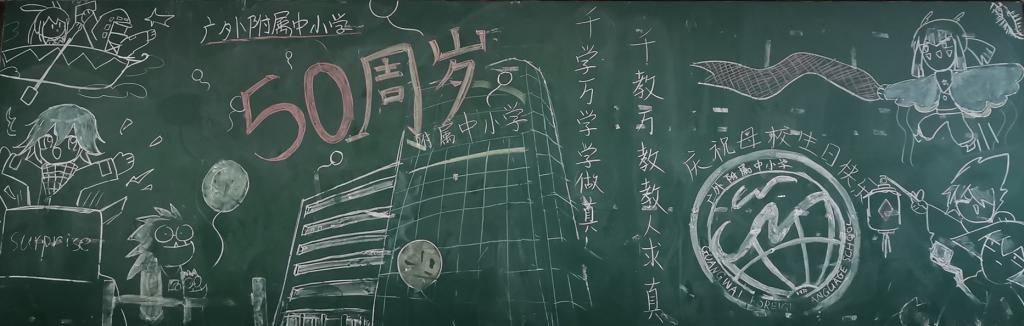 广外附属中小学
50周岁
附属中小学
千学万学学做真
千教万教教人求真
庆祝母校生日快乐
广外附属中小学
surprise